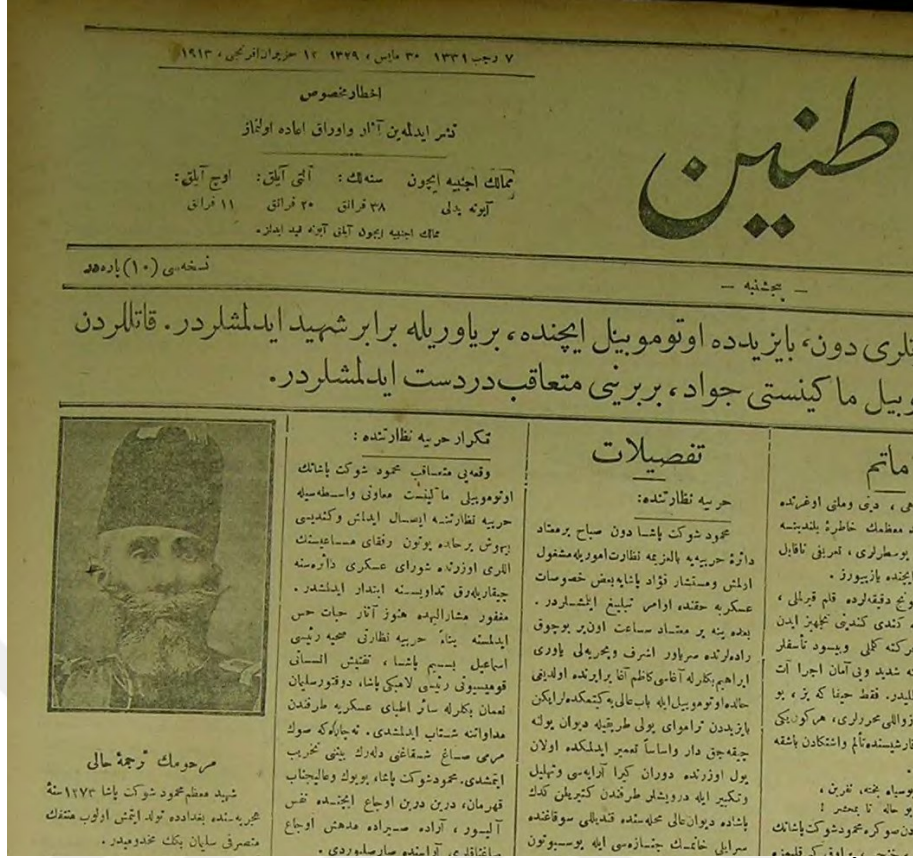 ٧ رجب ١٣٣١ ٣٠ مايس ، ١٣٢٩ ١٢ حزيران افرنجى ، ١٩١٣
اخطار مخصوص
نشر ايدلمەين آثار واوراق اعاده اولنماز
ممالك اجنبيه ايچون سنه‌لك : آلتى آيلق : اوچ آيلق :
آبونه بدلى ٣٨ فرانق ٢٠ فرانق ١١ فرانق
ممالك اجنبيه ايچون آيلق آبونه قيد ايدلز .
طنين
نسخه‌سى (١٠) پاره‌در
— پنجشنبه —
تلرى دون، بايزيدده اوتوموبيل ايچنده، برياوريله برابر شهيد ايدلمشلردر. قاتللردن
وبيل ماكينستى جواد، بربرينى متعاقب دردست ايدلمشلردر.
ماتم
تفصيلات
حربيه نظارتنده:
محمود شوكت پاشا دون صباح برمعتاد
دائرهٔ حربيه‌يه بالعزيمه نظارت اموريله مشغول
اولمش ومستشار فؤاد پاشايه بعض خصوصات
عسكريه حقنده اوامر تبليغ ايتمشلردر .
بعده ينه بر معتاد ساعت اون بر بوچوق
راده‌لرنده سرياور اشرف وبحريه‌لى ياورى
ابراهيم بكلرله آغاسى كاظم آغا برابرنده اولديغى
حالده اوتوموبيل ايله باب عالى‌يه كيتمكده‌لر ايكن
بايزيددن تراموای يولى طريقيله ديوان يولنه
چيقه‌جق دار واساساً تعمير ايدلمكده اولان
يول اوزرنده دوران كيرا آرابه‌سى وتهليل
وتكبير ايله درويشلر طرفندن كتيريلن كدك
پاشاده ديوان عالى محله‌سنده قنديللى سوقاغنده
سرايلى خانمك جنازه‌سى ايله بوسبوتون
تكرار حربيه نظارتنده :
وقعه‌يى متعاقب محمود شوكت پاشانك
اوتوموبيلى ماكينست معاونى واسطه‌سيله
حربيه نظارتنه ايصال ايدلمش وكنديسى
بيهوش برحالده بوتون رفقاى مساعيسنك
اللرى اوزرنده شوراى عسكرى دائره‌سنه
چيقاريله‌رق تداويسنه ابتدار ايدلمشدر .
مغفور مشاراليهده هنوز آثار حيات حس
ايدلمسنه بناءً حربيه نظارتى صحيه رئيسى
اسماعيل بسيم پاشا ، تفتيش السانى
قوميسيونى رئيسى لامبكى پاشا، دوقتور سليمان
نعمان بكلرله سائر اطباى عسكريه طرفندن
مداواتنه شتاب ايدلمشدى .
مرمى صاغ شقاغنى دله‌رك بينى تخريب
ايتمشدى. محمود شوكت پاشا، بويوك وعاليجناب
قهرمان، درين درين اوجاع ايچنده نفس
آليور ، آراده صيراده مدهش اوجاع
مرحومك ترجمهٔ حالى
شهيد معظم محمود شوكت پاشا ١٢٧٣ سنهٔ
هجريه‌سنده بغدادده تولد ايتمش اولوب منتفك
متصرفى سليمان بكك مخدوميدر .